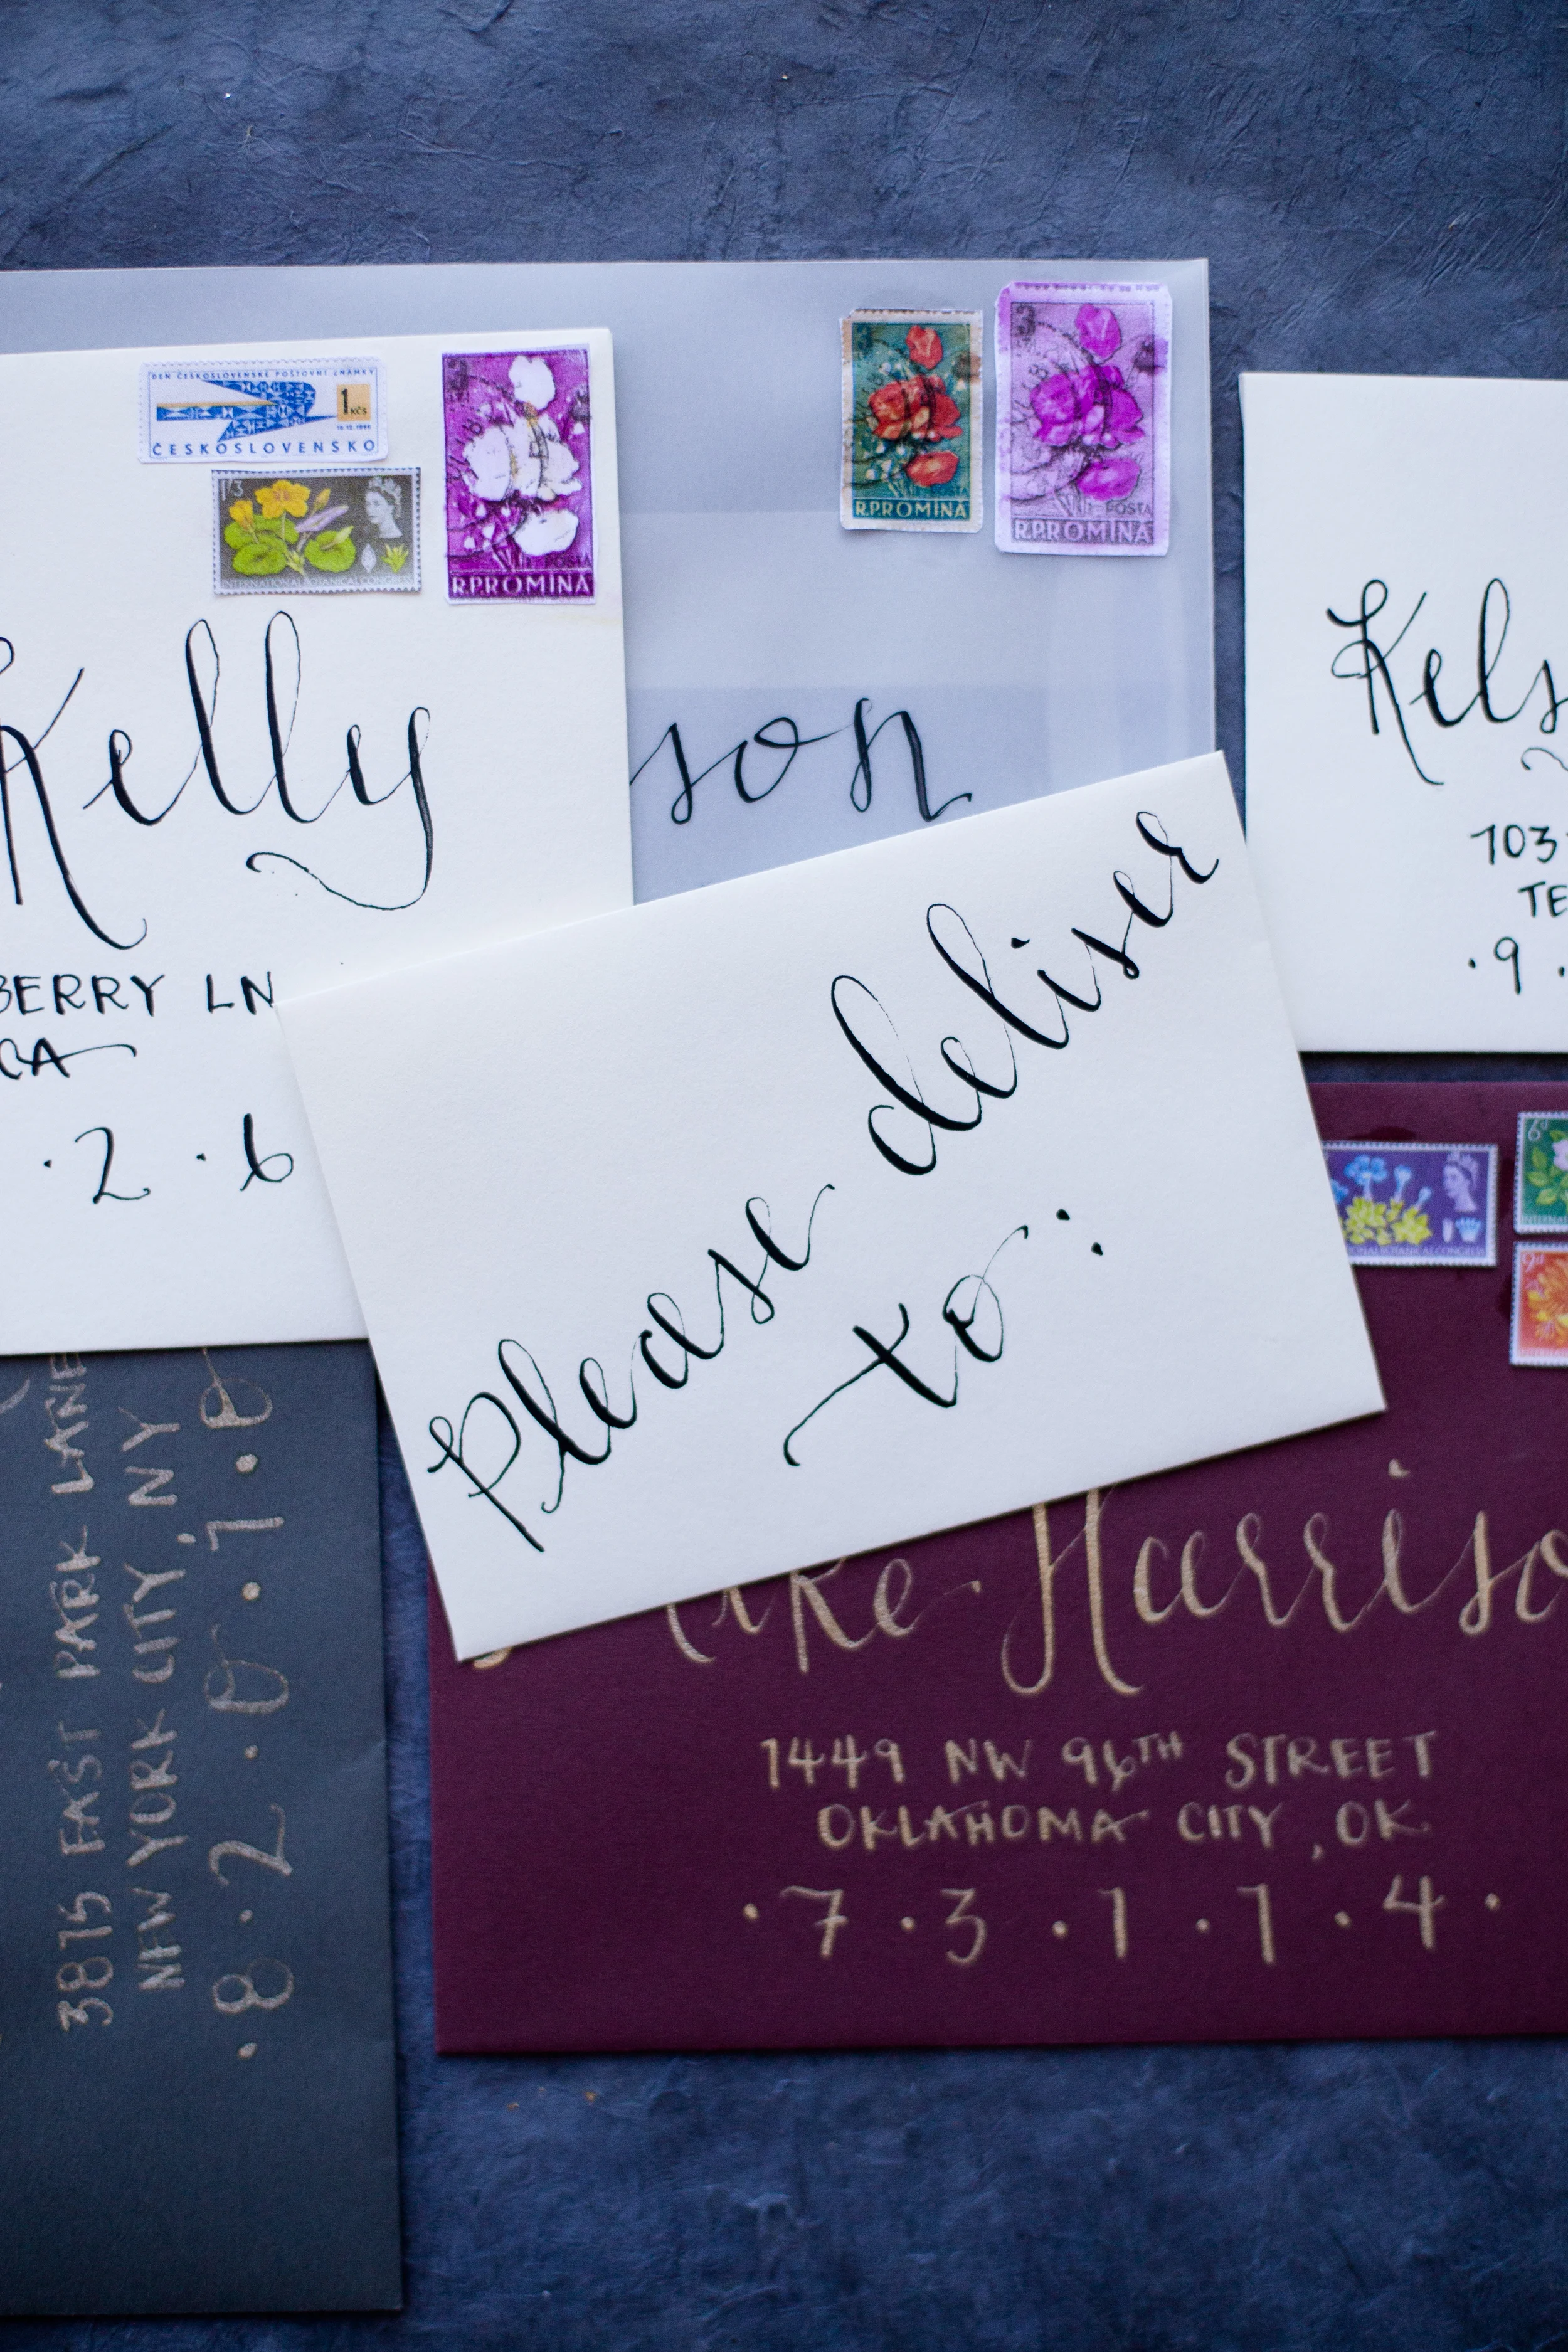 DEN ČESKOSLOVENSKÉ POŠTOVNÍ ZNÁMKY
1 KČS
ČESKOSLOVENSKO
1/3
INTERNATIONAL BOTANICAL CONGRESS
POSTA
R.P.ROMINA
POSTA
R.P.ROMINA
POSTA
R.P.ROMINA
Kelly
BERRY LN
CA
·2 ·6
son
Kels
103
TE
·9·
Please deliver
to:
6d
9d
BOTANICAL CONGRESS
ke Harriso
1449 NW 96TH STREET
OKLAHOMA CITY, OK
·7·3·1·1·4·
3875 EAST PARK LANE
NEW YORK CITY, NY
·8·2·0·1·0